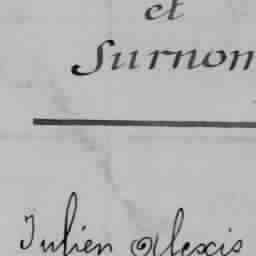 et
Surnom
Julien Alexis